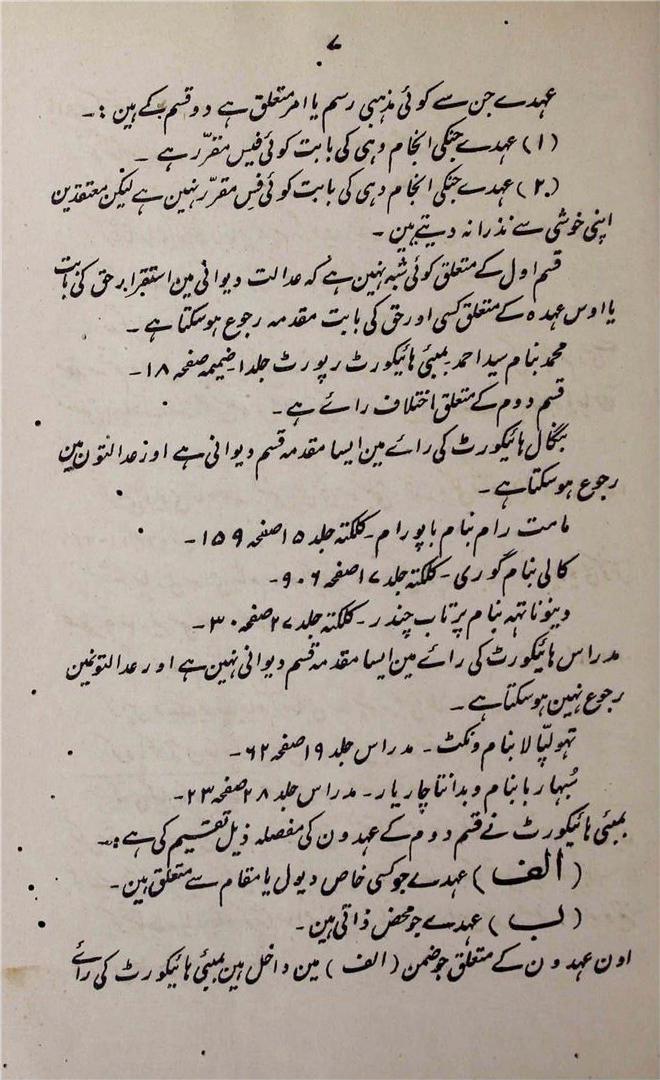 ۷
عہدے جن سے کوئی مذہبی رسم یا امر متعلق ہے دو قسم کے ہین :۔
(۱) عہدے جنکی انجام دہی کی بابت کوئی فیس مقرّر ہے ۔
(۲) عہدے جنکی انجام دہی کی بابت کوئی فیس مقرّر نہین ہے لیکن معتقدین
اپنی خوشی سے نذرانہ دیتے ہین ۔
قسم اول کے متعلق کوئی شبہ نہین ہے کہ عدالت دیوانی مین استقرار حق کی بابت
یا اوس عہدہ کے متعلق کسی اور حق کی بابت مقدمہ رجوع ہوسکتا ہے ۔
محمد بنام سید احمد بمبئی ہائیکورٹ رپورٹ جلد ۱ ضمیمہ صفحہ ۱۸ ۔
قسم دوم کے متعلق اختلاف رائے ہے ۔
بنگال ہائیکورٹ کی رائے مین ایسا مقدمہ قسم دیوانی ہے اور عدالتون مین
رجوع ہوسکتا ہے ۔
مامت رام بنام باپو رام ۔ کلکتہ جلد ۱۵ صفحہ ۱۵۹ ۔
کالی بنام گوری ۔ کلکتہ جلد ۱۷ صفحہ ۹۰۶ ۔
دینوناتہہ بنام پرتاب چندر ۔ کلکتہ جلد ۲۷ صفحہ ۳۰ ۔
مدراس ہائیکورٹ کی رائے مین ایسا مقدمہ قسم دیوانی نہین ہے اور عدالتونمین
رجوع نہین ہوسکتا ہے ۔
تہولپّالا بنام ونکٹ ۔ مدراس جلد ۱۹ صفحہ ۶۲ ۔
سُبہاربا بنام ویدانتاچاریار ۔ مدراس جلد ۲۸ صفحہ ۲۳ ۔
بمبئی ہائیکورٹ نے قسم دوم کے عہدون کی مفصلہ ذیل تقسیم کی ہے :۔
(الف) عہدے جو کسی خاص دیول یا مقام سے متعلق ہین ۔
(ب) عہدے جو محض ذاتی ہین ۔
اون عہدون کے متعلق جو ضمن (الف) مین داخل ہین بمبئی ہائیکورٹ کی رائے